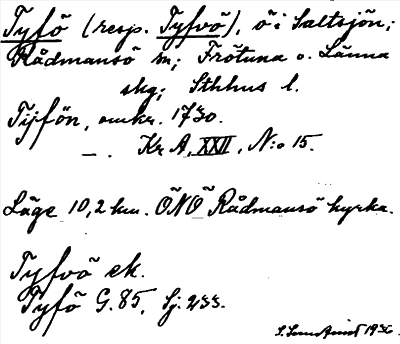 Tyfö (resp. Tyfvö), ö i Saltsjön;
Rådmansö sn; Frötuna o. Länna
skg; Sthhus l.
Tijfön, omkr. 1730.
— . Kr A, XXII, N:o 15.
Läge 10,2 km. ÖNÖ Rådmansö kyrka.
Tyfvö ek.
Tyfö G. 85, Sj. 233.
1936